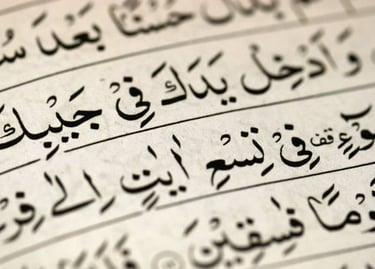 بَدَّلَ حُسْنًۢا بَعْدَ سُ
وَاَدْخِلْ يَدَكَ فِيْ جَيْبِكَ
وْٓءٍ قف فِيْ تِسْعِ اٰيٰتٍ اِلٰى فِرْ
وْمًا فٰسِقِيْنَ